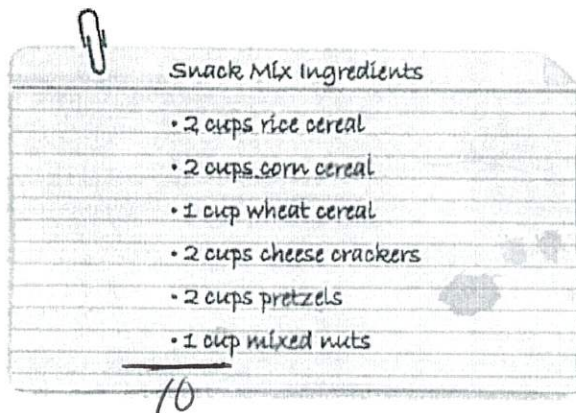 Snack Mix Ingredients
• 2 cups rice cereal
• 2 cups corn cereal
• 1 cup wheat cereal
• 2 cups cheese crackers
• 2 cups pretzels
• 1 cup mixed nuts
10